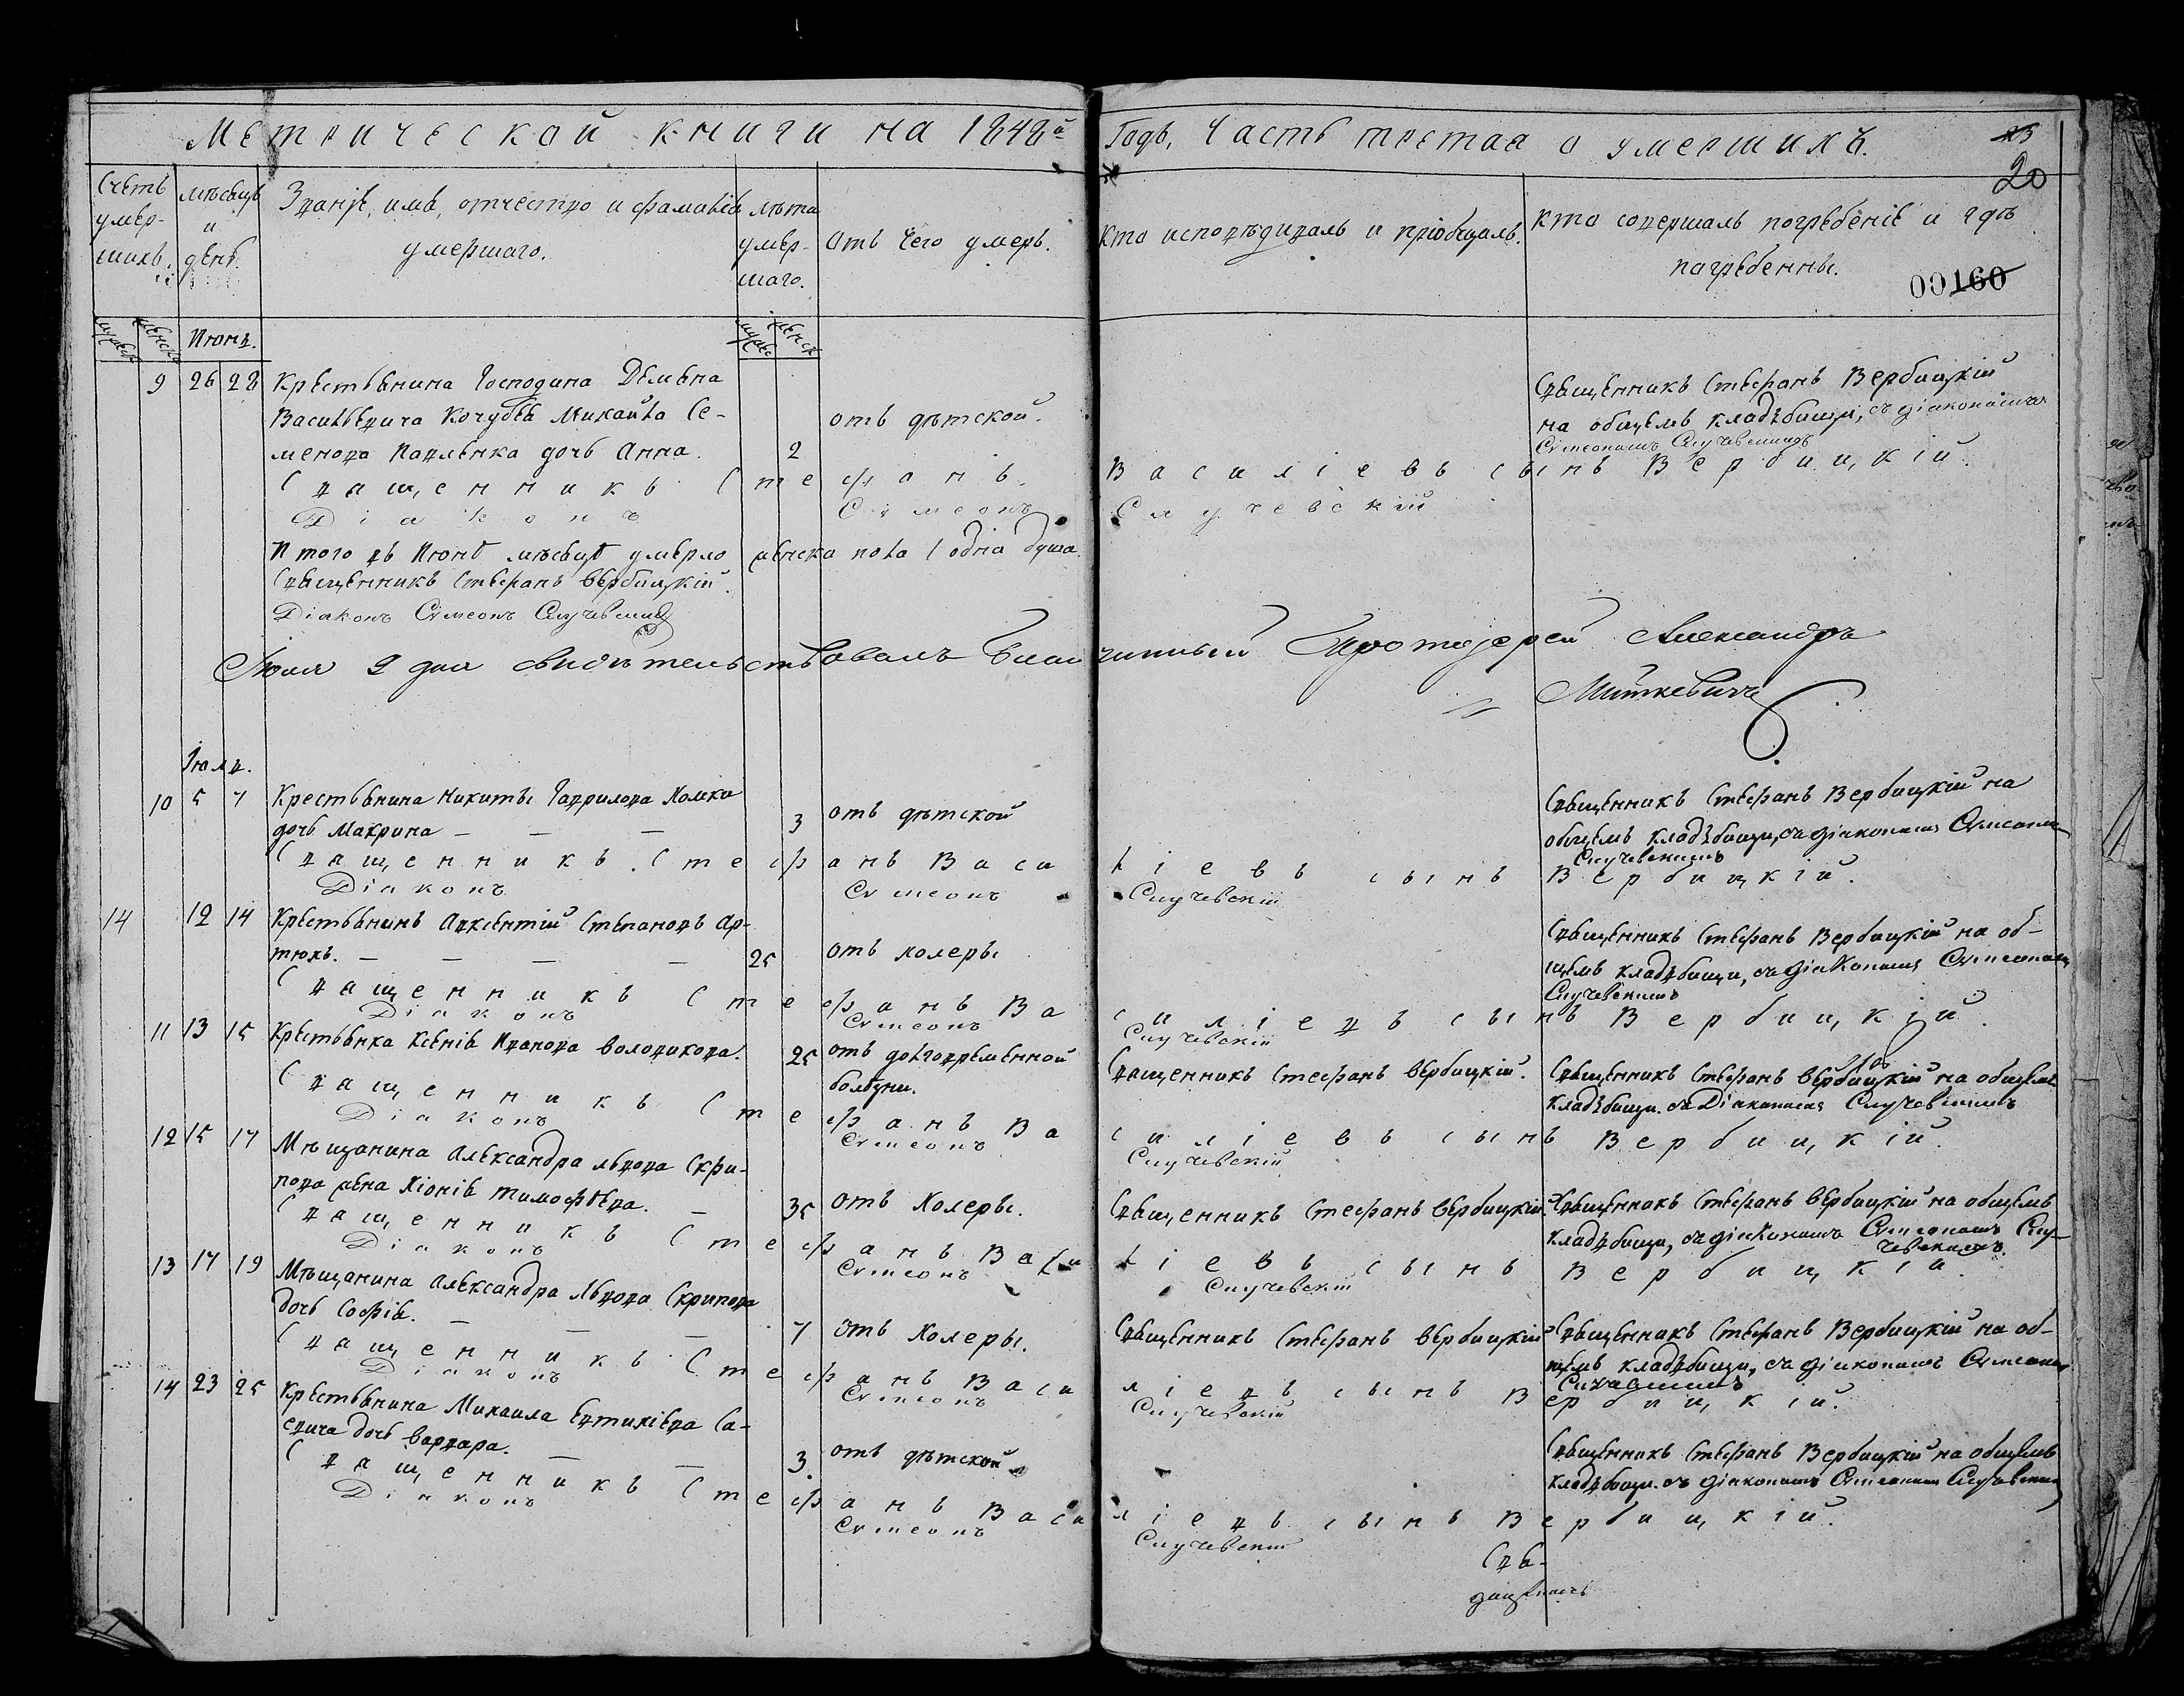 Метрической книги на 1848й Годъ, Часть третая о умершихъ.
23
20
Счетъ умер-шихъ.
мѣсяцъ и день.
Званіе, имя, отчество и фамилія умершаго.
лѣта умер-шаго.
Отъ чего умеръ.
кто исповѣдывалъ и пріобщалъ.
кто совершалъ погребеніе и гдѣ погребенны.
00160
Іюня.
9 26 28 Крестьянина Господина Демьяна
Васильевича Кочубея Михаила Се-
менова Павленка дочь Анна.
2
отъ дѣтской.
Священникъ Стефанъ Вербицкій
на общемъ кладбищи, съ діакономъ
Сѵмеономъ Случевскимъ
Священникъ Стефанъ Василіевъ сынъ Вербицкій.
Діаконъ Сѵмеонъ Случевскій
Итого въ Іюнѣ мѣсяцѣ умерло женска пола 1 одна душа.
Священникъ Стефанъ Вербицкій.
Діаконъ Сѵмеонъ Случевскій
Іюля 2 дня свидѣтельствовалъ Благочинный Протоіерей Александръ
Миткевичъ
Іюля.
10 5 7 Крестьянина Никиты Гаврилова Хомки
дочь Макрина — — —
3
отъ дѣтской
Священникъ Стефанъ Вербицкій на
общемъ кладбищи, съ діакономъ Сѵмеономъ
Случевскимъ
Священникъ Стефанъ Василіевъ сынъ Вербицкій.
Діаконъ Сѵмеонъ Случевскій
14 12 14 Крестьянинъ Авксентій Степановъ Ар-
тюхъ. — — — —
25
отъ холеры
Священникъ Стефанъ Вербицкій на об-
щемъ кладбищи, съ діакономъ Сѵмеономъ
Случевскимъ
Священникъ Стефанъ Василіевъ сынъ Вербицкій.
Діаконъ Сѵмеонъ Случевскій
11 13 15 Крестьянка Ксенія Иванова Володикова.
25
отъ долговременной
болѣзни.
Священникъ Стефанъ Вербицкій.
Священникъ Стефанъ Вербицкій на общемъ
кладбищи. съ Діакономъ Случевскимъ
Священникъ Стефанъ Василіевъ сынъ Вербицкій.
Діаконъ Сѵмеонъ Случевскій
12 15 17 Мѣщанина Александра Львова Скри-
пова жена Хіонія Тимофѣева. —
35
отъ Холеры.
Священникъ Стефанъ Вербицкій.
Священникъ Стефанъ Вербицкій на общемъ
кладбищи, съ діакономъ Сѵмеономъ Слу-
чевскимъ.
Священникъ Стефанъ Василіевъ сынъ Вербицкій.
Діаконъ Сѵмеонъ Случевскій
13 17 19 Мѣщанина Александра Львова Скрипова
дочь Софія. — — —
7
отъ Холеры.
Священникъ Стефанъ Вербицкій
Священникъ Стефанъ Вербицкій на об-
щемъ кладбищи, съ діакономъ Сѵмеономъ
Случевскимъ
Священникъ Стефанъ Василіевъ сынъ Вербицкій.
Діаконъ Сѵмеонъ Случевскій
14 23 25 Крестьянина Михаила Евтихіева Са-
евича дочь Варвара. — —
3.
отъ дѣтской
Священникъ Стефанъ Вербицкій на общемъ
кладбищи. съ діакономъ Сѵмеономъ Случевскимъ
Священникъ Стефанъ Василіевъ сынъ Вербицкій.
Діаконъ Сѵмеонъ Случевскій